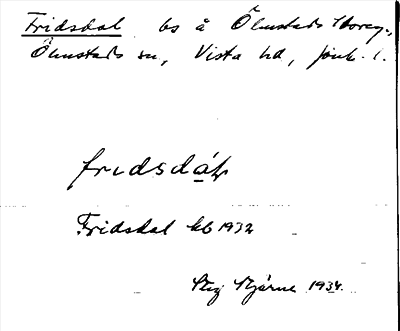 Fridsdal bs å Ölmstads Storeg.,
Ölmstads sn, Vista hd, jönk. l.
fridsdáɫ
Fridsdal kb 1932
Stig Hjärne 1934.